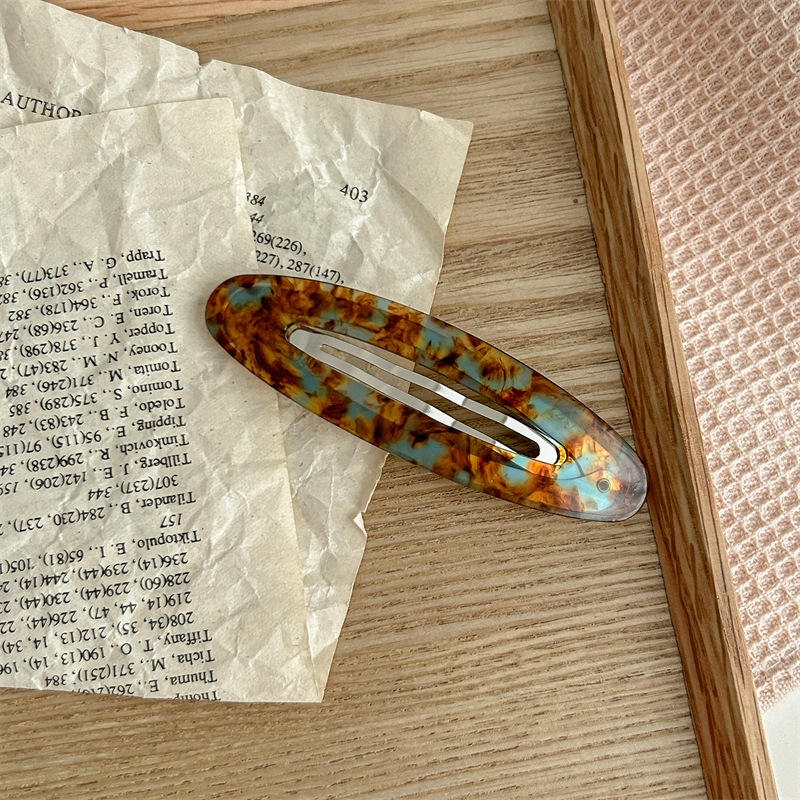 AUTHOR
403
384
44
269(226),
227), 287(147),
Thuma, E.,
384
Ticha, M., 371(251),
Tiffany, T. O., 190(13, 14), 196
208(34, 35), 212, 13, 14,
219(14, 44, 47), 226(44),
228(60), 229(44), 230(44),
236(14), 239(44), 244(14
Tiktopulo, E. I., 65(81), 105(
157
Tilander, B., 284(230, 237),
307(237), 344
Tillberg, J. E., 142(206), 159
Tinkovich, R., 299(238), 34
Tipping, E., 95(115), 97(115
Toledo, F. B., 243(83), 248
Tomino, S., 375(289), 385
Tomita, M., 371(246), 384
Tooney, N. M., 283(47),
Topper, Y. J., 378(298), 38
Toren, E. C., 236(68), 247
Torok, F., 364(178), 382
Tramell, P., 362(136), 382
Trapp, G. A., 373(77), 38